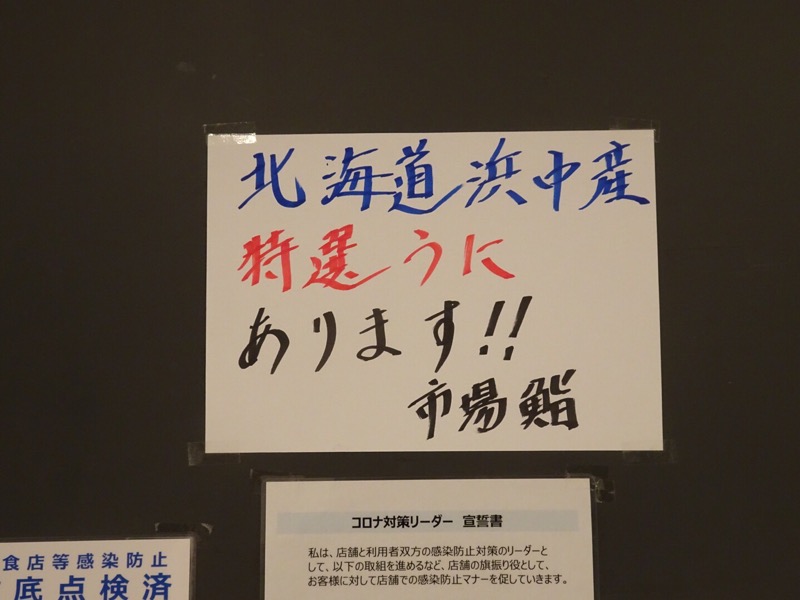 北海道浜中産
特選うに
あります!!
市場鮨
コロナ対策リーダー 宣誓書
私は、店舗と利用者双方の感染防止対策のリーダーと
して、以下の取組を進めるなど、店舗の旗振り役として、
お客様に対して店舗での感染防止マナーを促していきます。
食店等感染防止
底点検済